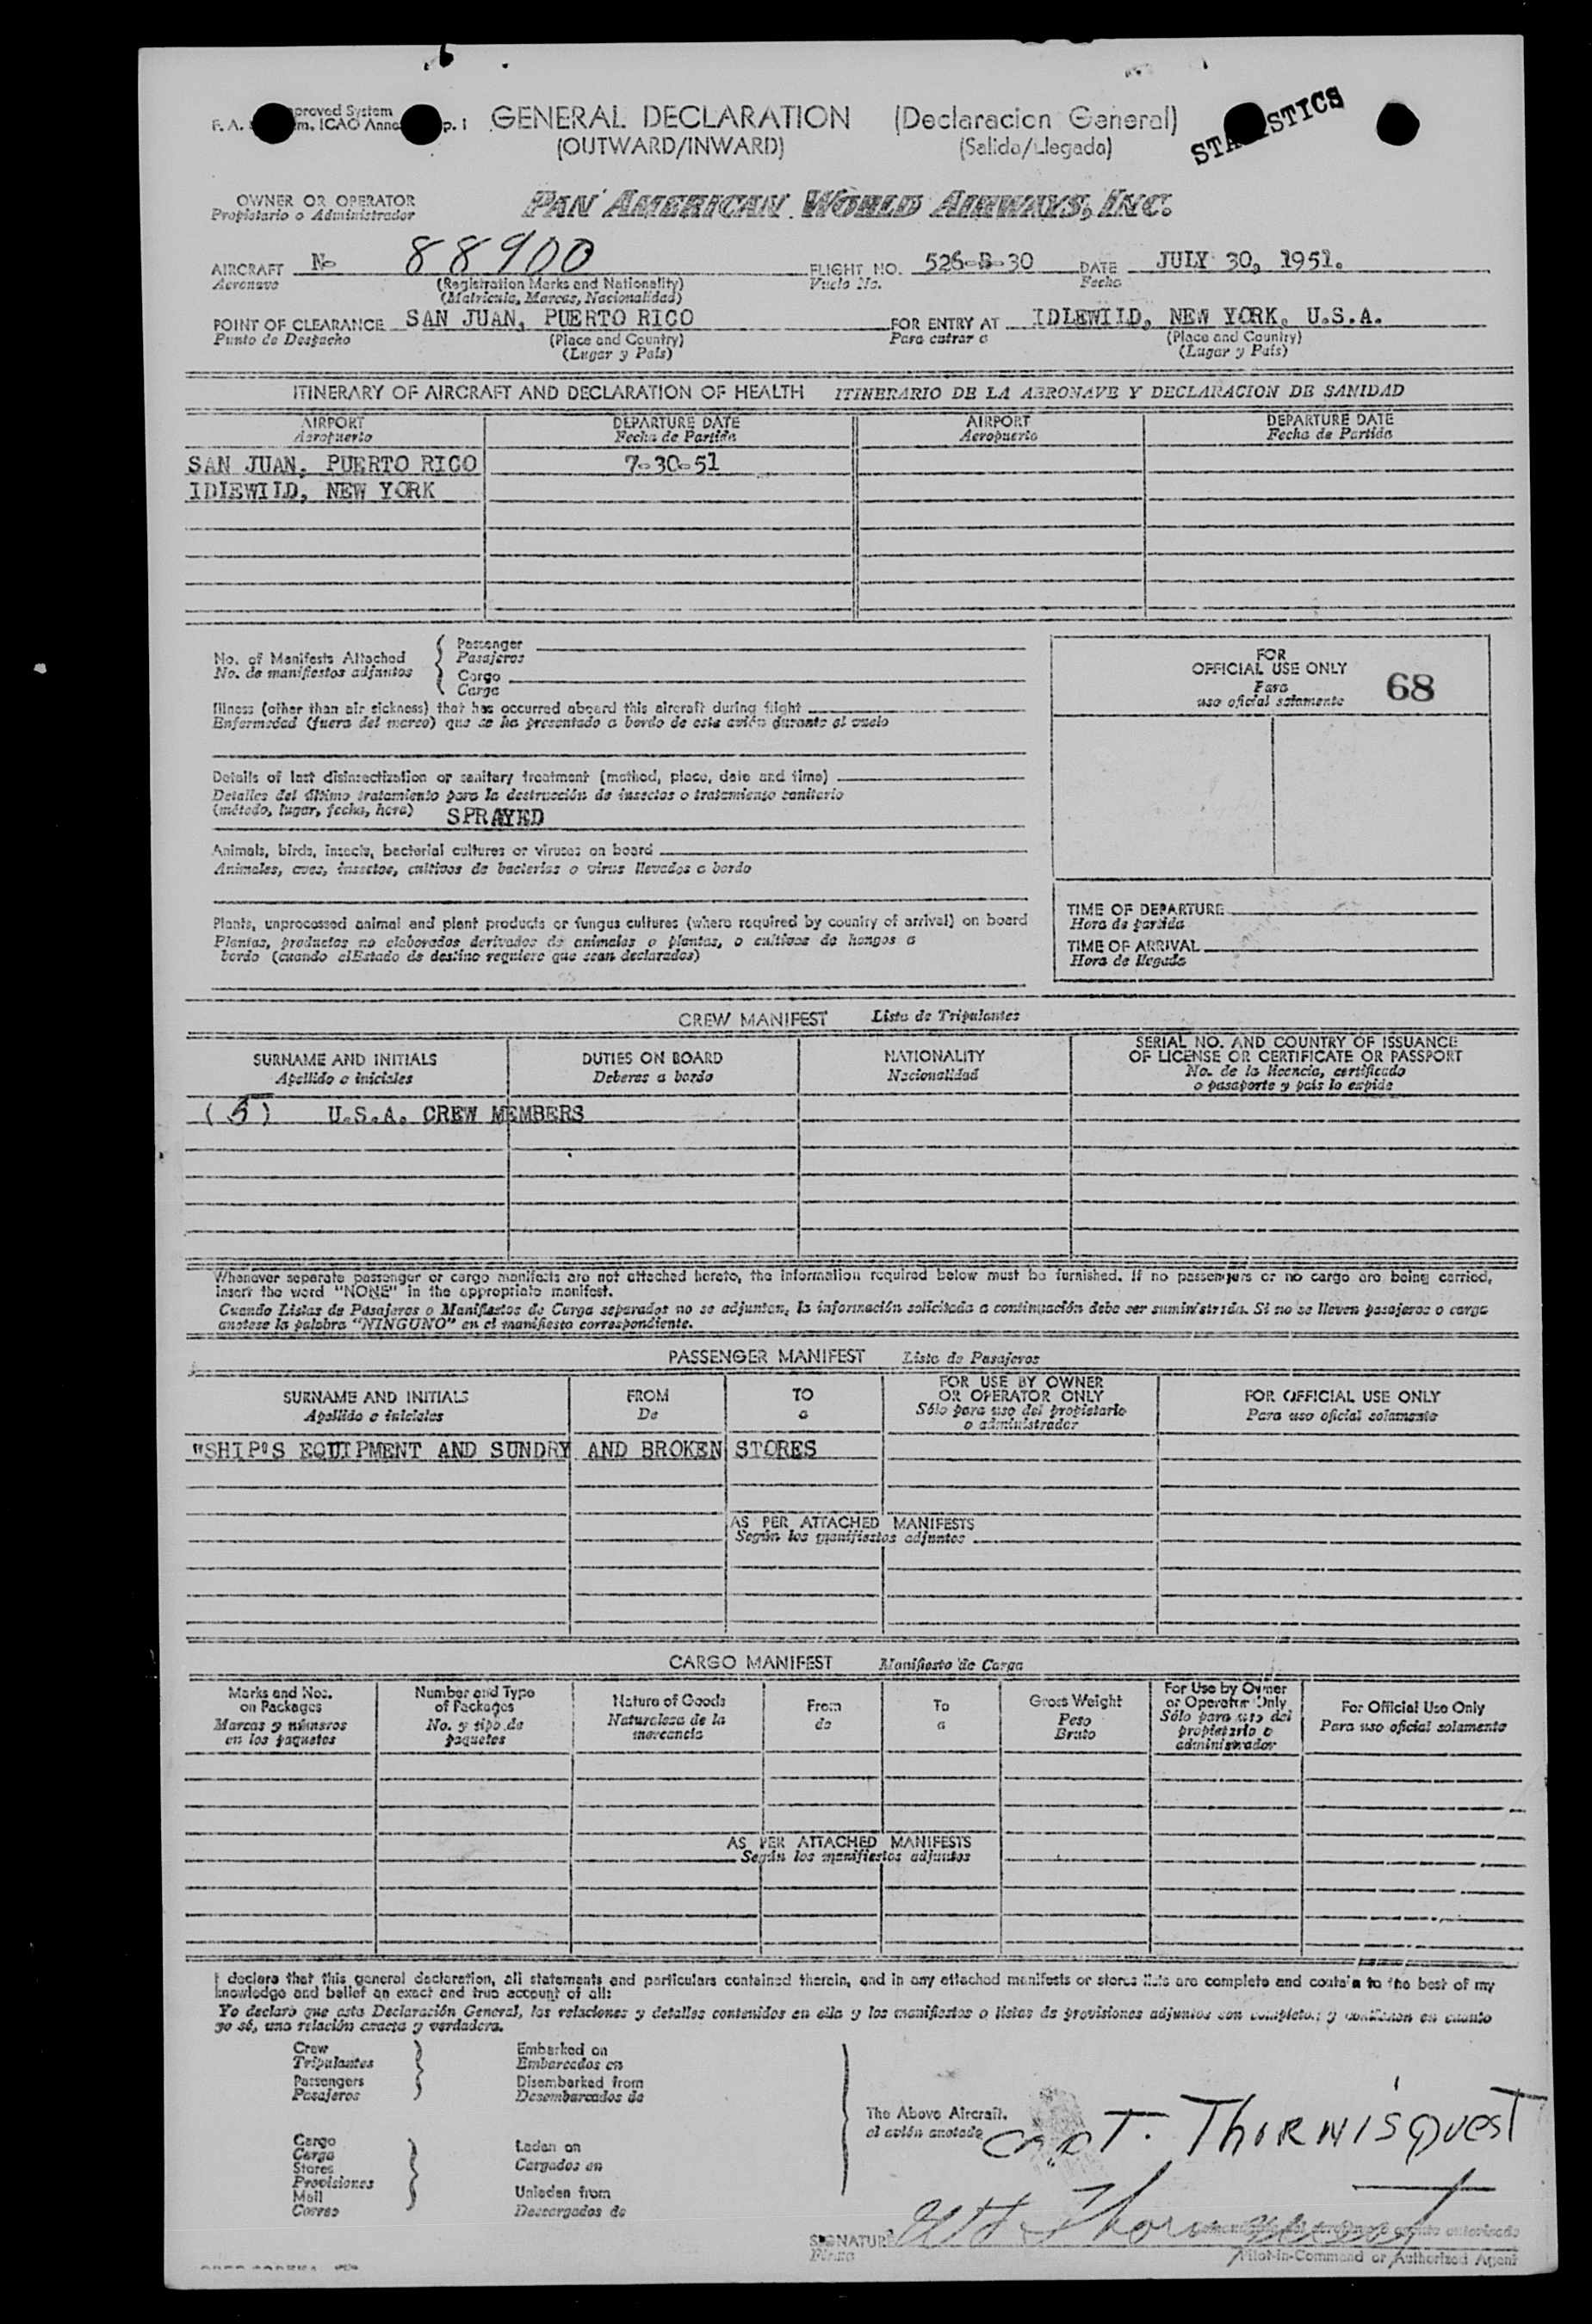 GENERAL DECLARATION (Declaracion General)
(OUTWARD/INWARD) (Salida/Llegada)
STATISTICS
OWNER OR OPERATOR PAN AMERICAN WORLD AIRWAYS, INC.
Propietario o Administrador
AIRCRAFT N- 88900 FLIGHT NO. 526-B-30 DATE JULY 30, 1951.
Aeronave (Registration Marks and Nationality) Vuelo No. Fecha
(Matricula, Marcas, Nacionalidad)
POINT OF CLEARANCE SAN JUAN, PUERTO RICO FOR ENTRY AT IDLEWILD, NEW YORK, U.S.A.
Punto de Despacho (Place and Country) Para entrar a (Place and Country)
(Lugar y País) (Lugar y País)
ITINERARY OF AIRCRAFT AND DECLARATION OF HEALTH ITINERARIO DE LA AERONAVE Y DECLARACION DE SANIDAD
AIRPORT DEPARTURE DATE AIRPORT DEPARTURE DATE
Aeropuerto Fecha de Partida Aeropuerto Fecha de Partida
SAN JUAN, PUERTO RICO 7-30-51
IDLEWILD, NEW YORK
No. of Manifests Attached Passenger
No. de manifiestos adjuntos Pasajeros
Cargo
Carga
FOR
OFFICIAL USE ONLY 68
Para
uso oficial solamente
Illness (other than air sickness) that has occurred aboard this aircraft during flight
Enfermedad (fuera del mareo) que se ha presentado a bordo de este avión durante el vuelo
Details of last disinsectization or sanitary treatment (method, place, date and time)
Detalles del último tratamiento para la destrucción de insectos o tratamiento sanitario
(método, lugar, fecha, hora) SPRAYED
Animals, birds, insects, bacterial cultures or viruses on board
Animales, aves, insectos, cultivos de bacterias o virus llevados a bordo
Plants, unprocessed animal and plant products or fungus cultures (where required by country of arrival) on board
Plantas, productos no elaborados derivados de animales o plantas, o cultivos de hongos a
bordo (cuando elEstado de destino requiere que sean declarados)
TIME OF DEPARTURE
Hora de partida
TIME OF ARRIVAL
Hora de llegada
CREW MANIFEST Lista de Tripulantes
SURNAME AND INITIALS DUTIES ON BOARD NATIONALITY SERIAL NO. AND COUNTRY OF ISSUANCE
OF LICENSE OR CERTIFICATE OR PASSPORT
Apellido e iniciales Deberes a bordo Nacionalidad No. de la licencia, certificado
o pasaporte y país lo expide
(5) U.S.A. CREW MEMBERS
Whenever separate passenger or cargo manifests are not attached hereto, the information required below must be furnished. If no passengers or no cargo are being carried,
insert the word "NONE" in the appropriate manifest.
Cuando Listas de Pasajeros o Manifiestos de Carga separados no se adjunten, la información solicitada a continuación debe ser suministrada. Si no se lleven pasajeros o carga
anotese la palabra "NINGUNO" en el manifiesto correspondiente.
PASSENGER MANIFEST Lista de Pasajeros
SURNAME AND INITIALS FROM TO FOR USE BY OWNER
OR OPERATOR ONLY FOR OFFICIAL USE ONLY
Apellido e iniciales De a Sólo para uso del propietario
o administrador Para uso oficial solamente
"SHIP'S EQUIPMENT AND SUNDRY AND BROKEN STORES
AS PER ATTACHED MANIFESTS
Según los manifiestos adjuntos
CARGO MANIFEST Manifiesto de Carga
Marks and Nos.
on Packages
Marcas y números
en los paquetes
Number and Type
of Packages
No. y tipo de
paquetes
Nature of Goods
Naturaleza de la
mercancía
From
de
To
a
Gross Weight
Peso
Bruto
For Use by Owner
or Operator Only
Sólo para uso del
propietario o
administrador
For Official Use Only
Para uso oficial solamente
AS PER ATTACHED MANIFESTS
Según los manifiestos adjuntos
I declare that this general declaration, all statements and particulars contained therein, and in any attached manifests or stores lists are complete and contain to the best of my
knowledge and belief an exact and true account of all:
Yo declaro que esta Declaración General, las relaciones y detalles contenidos en ella y los manifiestos o listas de provisiones adjuntos son completos y contienen en cuanto
yo sé, una relación exacta y verdadera.
Crew Embarked on
Tripulantes Embarcados en
Passengers Disembarked from
Pasajeros Desembarcados de
The Above Aircraft.
el avión anotado
CAPT. THORNISQUEST
Cargo
Carga Laden on
Stores Cargados en
Provisiones
Mail Unladen from
Correo Descargados de
SIGNATURE
Firma
Pilot-in-Command or Authorized Agent